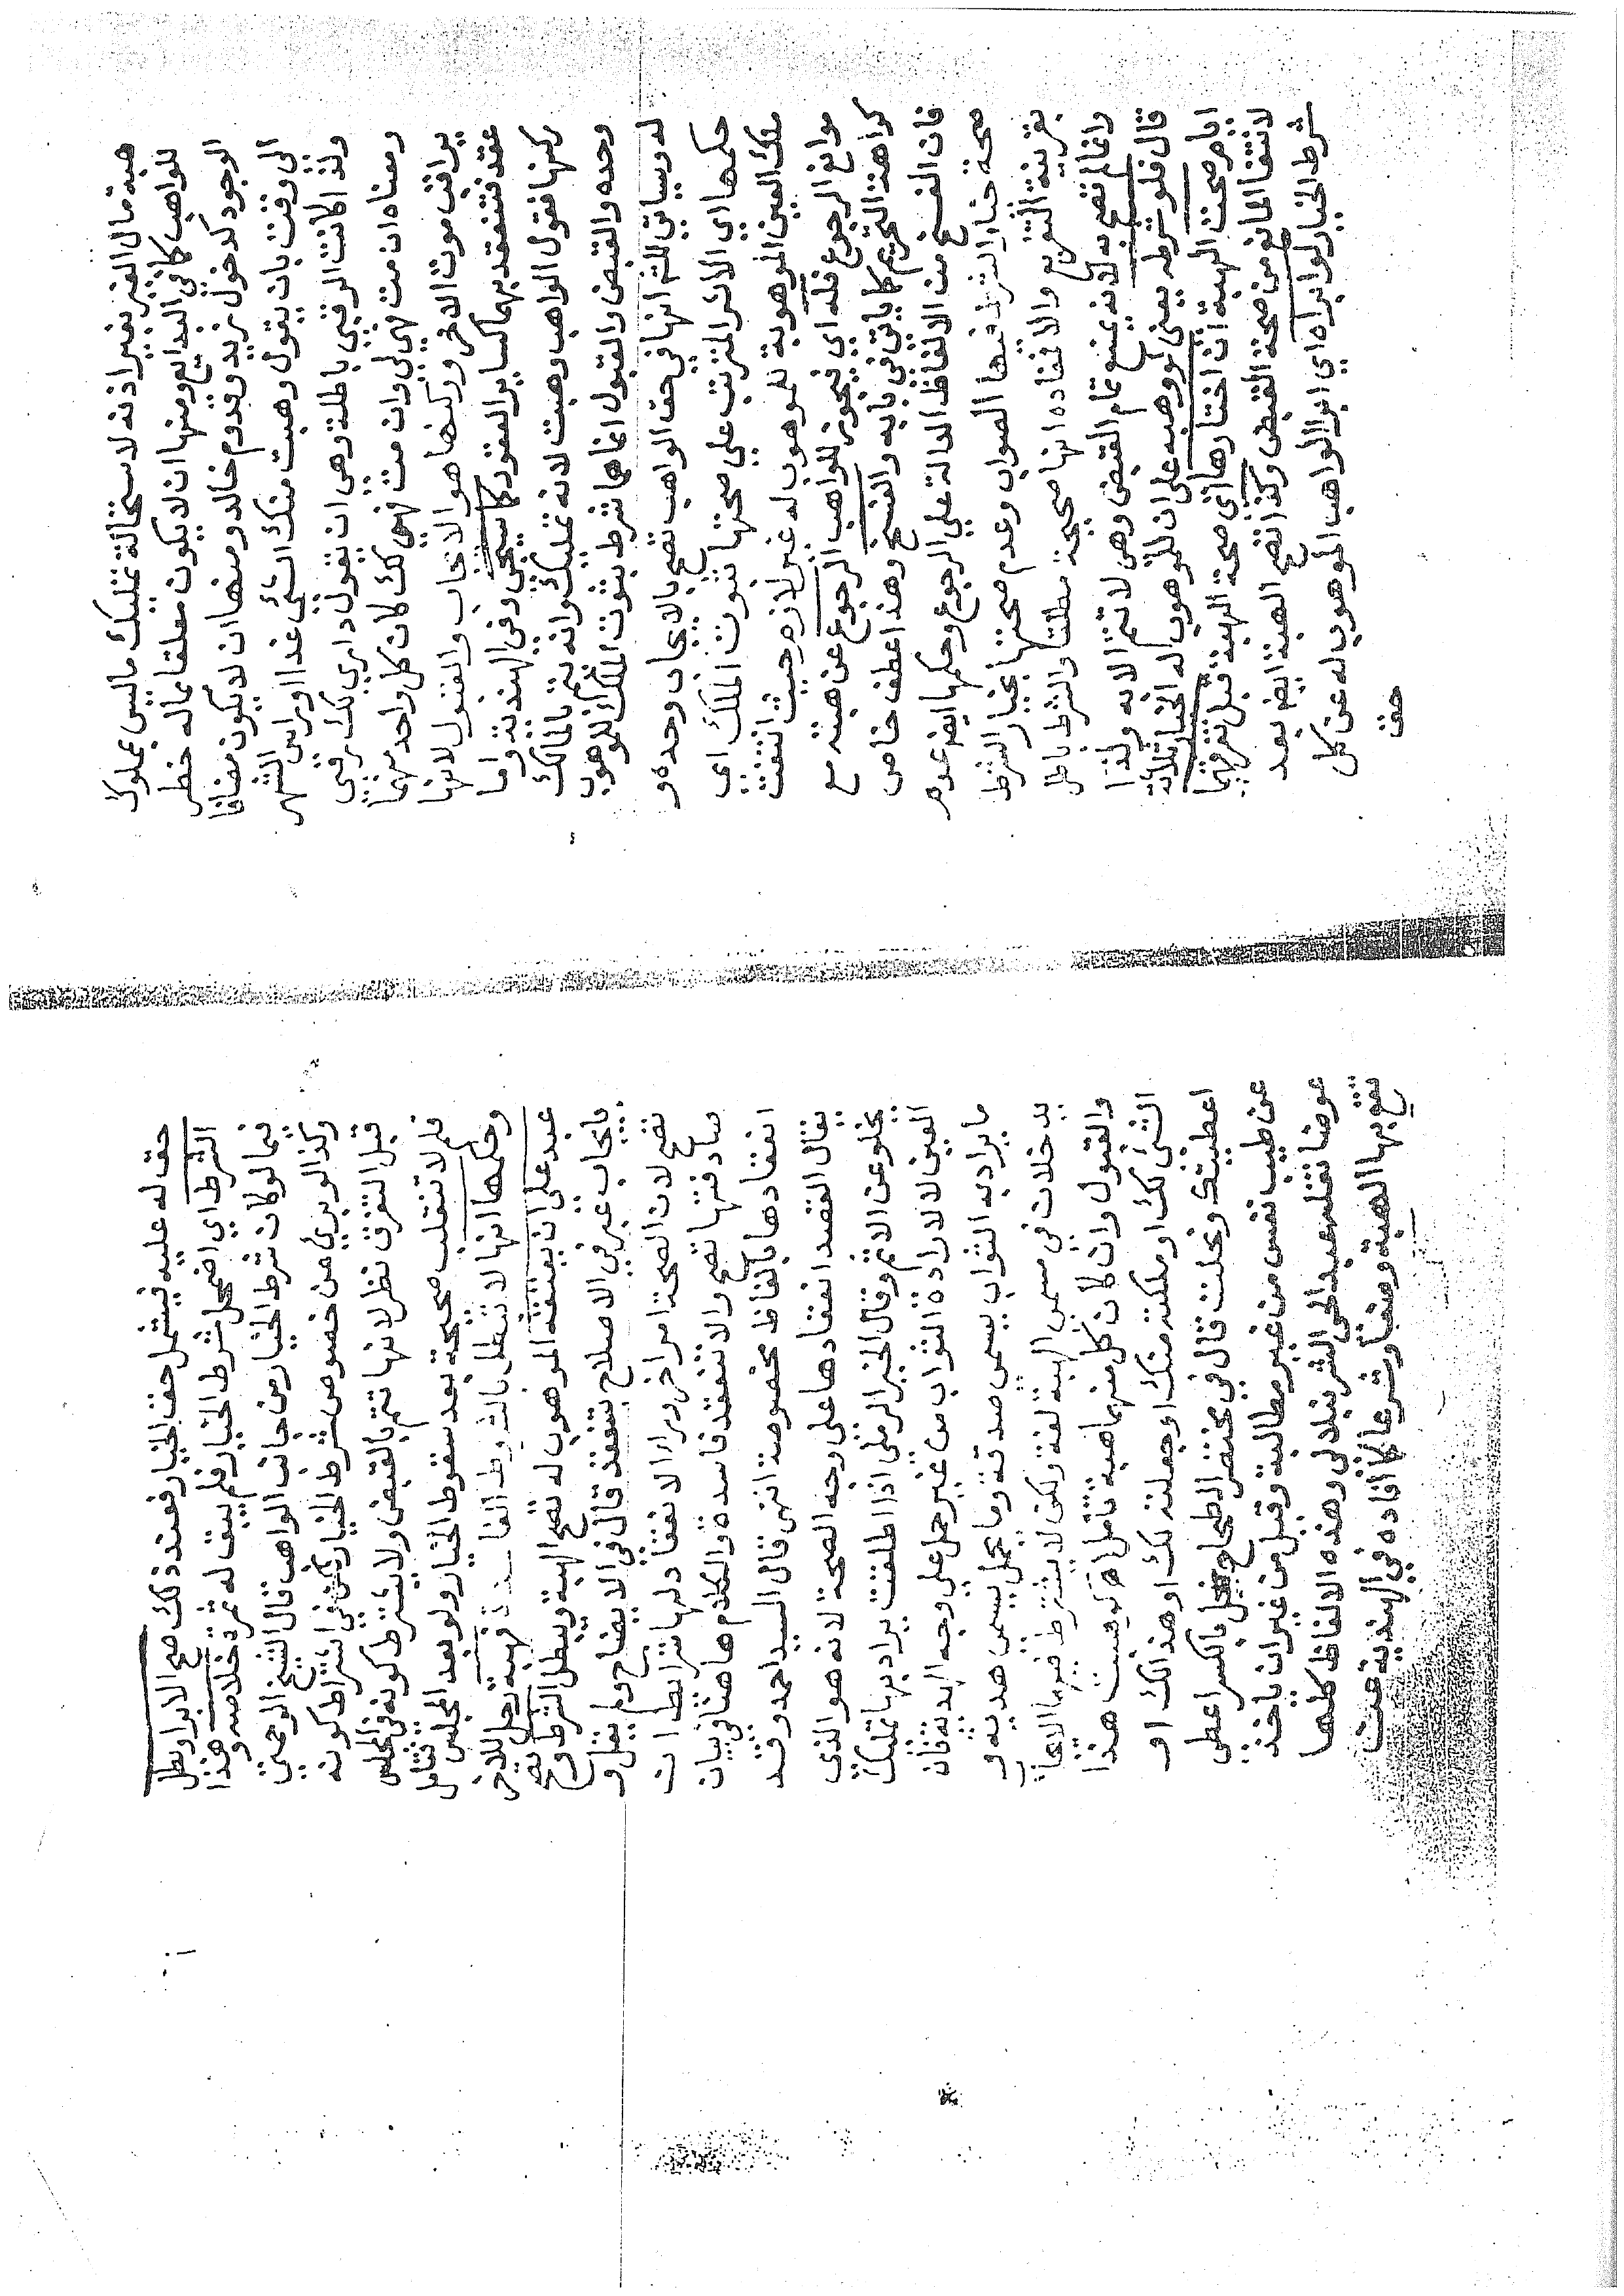 هبة مال الغير بغير اذنه لاستحالة تمليك ماليس بمملوك
للواهب كما في البدايع ومنها ان لا يكون معلقا بماله خطر
الوجود كدخول زيد وقدوم خالد ومنها ان لا يكون مضافا
الى وقت بان يقول وهبت منك الشئ غدا او راس الشهر
ولذا كانت الرقبى باطلة وهى ان يقول داري لك رقبى
ومعناه ان مت فهي لي وان مت فهي لك كان كل واحد منهما
يراقب موت الاخر وركنها هو الايجاب والقبول لانها
عقد فتنعقد بهما كساير العقود كما سيجئ وفي الهندية واما
ركنها فقول الواهب وهبت لانه تمليك وانه يتم بالمالك
وحده والقبض والقبول انما هما شرط ثبوت الملك للموهوب
له وسياتي للشم انها في حق الواهب تصح بالايجاب وحده و
حكمها اي الاثر المترتب على صحتها ثبوت الملك اى
ملك العين الموهوبة للموهوب له غير لازم حيث انتفت
موانع الرجوع فله اي فيجوز للواهب الرجوع عن هبته مع
كراهة التحريم كما ياتي في بابه والفسخ وهذا عطف خاص
فان الفسخ من الالفاظ الدالة على الرجوع وحكمها ايضا عدم
صحة خيار الشرط فيها الصواب وعدم صحتها بخيار الشرط
بقرينة التفريع والا فمفاده انها صحيحة مطلقا والشرط باطل
وانما لم تصح به لانه يمنع تمام القبض وهى لا تتم الا به ولذا
قال فلو شرطه يعنى لو وهبه على ان للموهوب له الخيار ثلاثة
ايام صحت الهبة ان اختارها اى صحة الهبة قبل تفرقهما
لانتفا المانع من صحة القبض وكذا تصح الهبة ايضا بعد
شرط الخيار لو ابراه اي ابرا الواهب الموهوب له عن كل
حق
حق له عليه فيشمل حق الخيار فعند ذلك صح الابرا وبطل
الشرط اي اضمحل شرط الخيار فلم يبق له ثمرة خلاصه وهذا
فيما لو كان شرط الخيار من جانب الواهب قال الشيخ الرحمتي
وكذا لو برئ من خصوص شرط الخيار لكن في اشتراط كونه
قبل التفرق نظر لانها تتم بالقبض ولا يشترط كونه في المجلس
فلم لا تنقلب صحيحة بعد سقوط الخيار ولو بعد المجلس فتأمل
وحكمها انها لا تبطل بالشروط الفاسدة فهبة نحل للاخر
عبد على ان يعتقه الموهوب له تصح الهبة ويبطل الشرط وصح به
بايجاب غير في الاصلاح تنعقد قال في الايضاح ولم يقل و
تصح لان الصحة امر اخر وراء الانعقاد ولها شرايط ان
صادفتها تصح والا تنعقد فاسدة والكلام هاهنا في بيان
انعقادها بالفاظ مخصوصة انتهى قال السيد احمد وقد
يقال القصد انعقادها على وجه الصحة لانه هو الذى
يخلو عن الاثم وقال الخير الرملي اذا اطلقت يراد بها تمليك
العين لا لارادة الثواب من غير حمل على وجه الهدية فان
ما يراد به الثواب يسمى صدقة وما يحمل يسمى هدية و
يدخلان في مسمى الهبة لغة ولكن لا يشترط فيهما الايجاب
والقبول وان كان كل منهما هبة تأمل اه كوهبت هذا
الشئ لك او ملكته منك او جعلته لك او هذا لك او
اعطيتك ونحلت قال في مختصر الصحاح نحل بالكسر اعطى
عن طيب نفس من غير مطالبة وقيل من غير ان ياخذ
عوضا نقله عبد الحى الشرنبلالي وهذه الالفاظ كلها
تقع بها الهبة وضعا وشرعا كما افاده في الهندية عنت